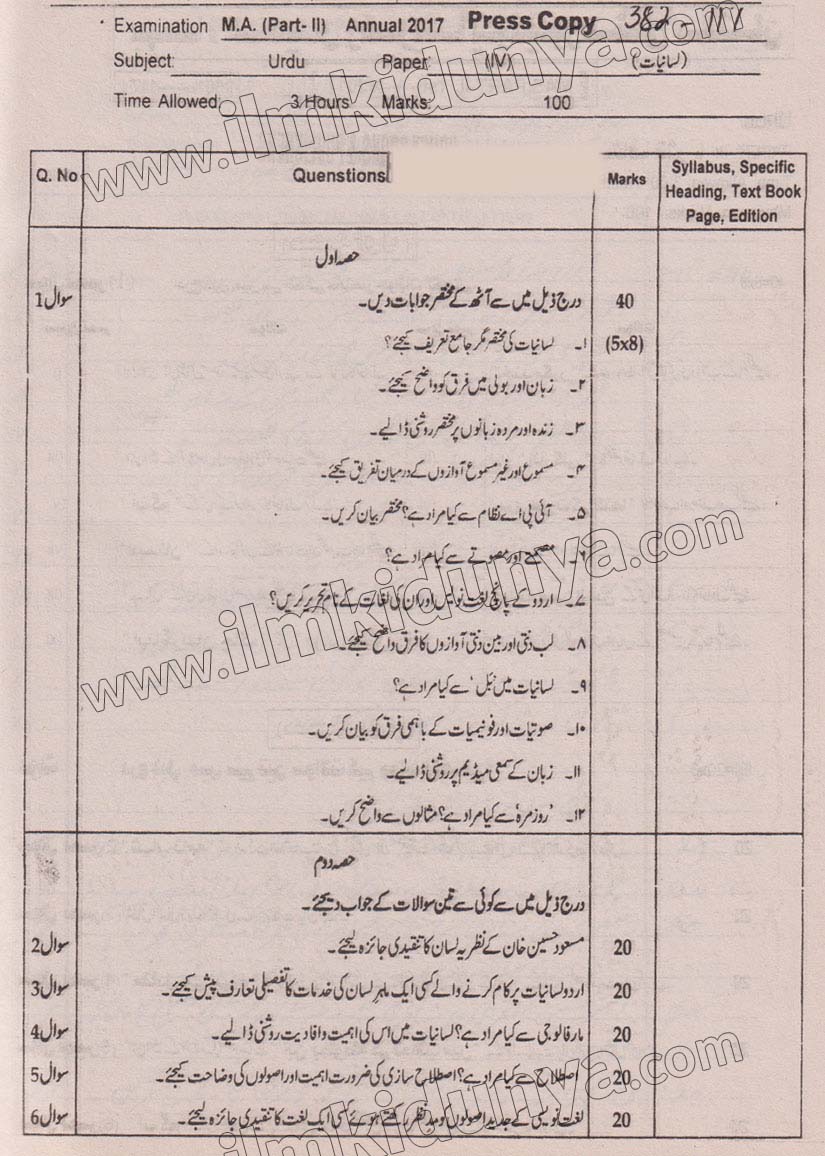 Examination M.A. (Part- II) Annual 2017 Press Copy 382 - 111
Subject: Urdu Paper: (IV) (لسانیات)
Time Allowed: 3 Hours Marks: 100
Q. No Quenstions Marks Syllabus, Specific Heading, Text Book Page, Edition
حصہ اول
سوال 1 درج ذیل میں سے آٹھ کے مختصر جوابات دیں۔ 40
۱۔ لسانیات کی مختصر مگر جامع تعریف کیجئے؟ (5x8)
۲۔ زبان اور بولی میں فرق کو واضح کیجئے۔
۳۔ زندہ اور مردہ زبانوں پر مختصر روشنی ڈالیے۔
۴۔ مسموع اور غیر مسموع آوازوں کے درمیان تفریق کیجئے۔
۵۔ آئی پی اے نظام سے کیا مراد ہے؟ مختصر بیان کریں۔
۶۔ مصمتے اور مصوتے سے کیا مراد ہے؟
۷۔ اردو کے پانچ لغت نویس اور ان کی لغات کے نام تحریر کریں؟
۸۔ لب دنتی اور بین دنتی آوازوں کا فرق واضح کیجئے۔
۹۔ لسانیات میں 'بَل' سے کیا مراد ہے؟
۱۰۔ صوتیات اور فونیمیات کے باہمی فرق کو بیان کریں۔
۱۱۔ زبان کے سمعی میڈیم پر روشنی ڈالیے۔
۱۲۔ 'روزمرہ' سے کیا مراد ہے؟ مثالوں سے واضح کریں۔
حصہ دوم
درج ذیل میں سے کوئی سے تین سوالات کے جواب دیجئے۔
سوال 2 مسعود حسین خان کے نظریہ لسان کا تنقیدی جائزہ لیجئے۔ 20
سوال 3 اردو لسانیات پر کام کرنے والے کسی ایک ماہر لسان کی خدمات کا تفصیلی تعارف پیش کیجئے۔ 20
سوال 4 مارفالوجی سے کیا مراد ہے؟ لسانیات میں اس کی اہمیت و افادیت روشنی ڈالیے۔ 20
سوال 5 اصطلاح سے کیا مراد ہے؟ اصطلاح سازی کی ضرورت اہمیت اور اصولوں کی وضاحت کیجئے۔ 20
سوال 6 لغت نویسی کے جدید اصولوں کو مدِ نظر رکھتے ہوئے کسی ایک لغت کا تنقیدی جائزہ لیجئے۔ 20
www.ilmkidunya.com
www.ilmkidunya.com
www.ilmkidunya.com